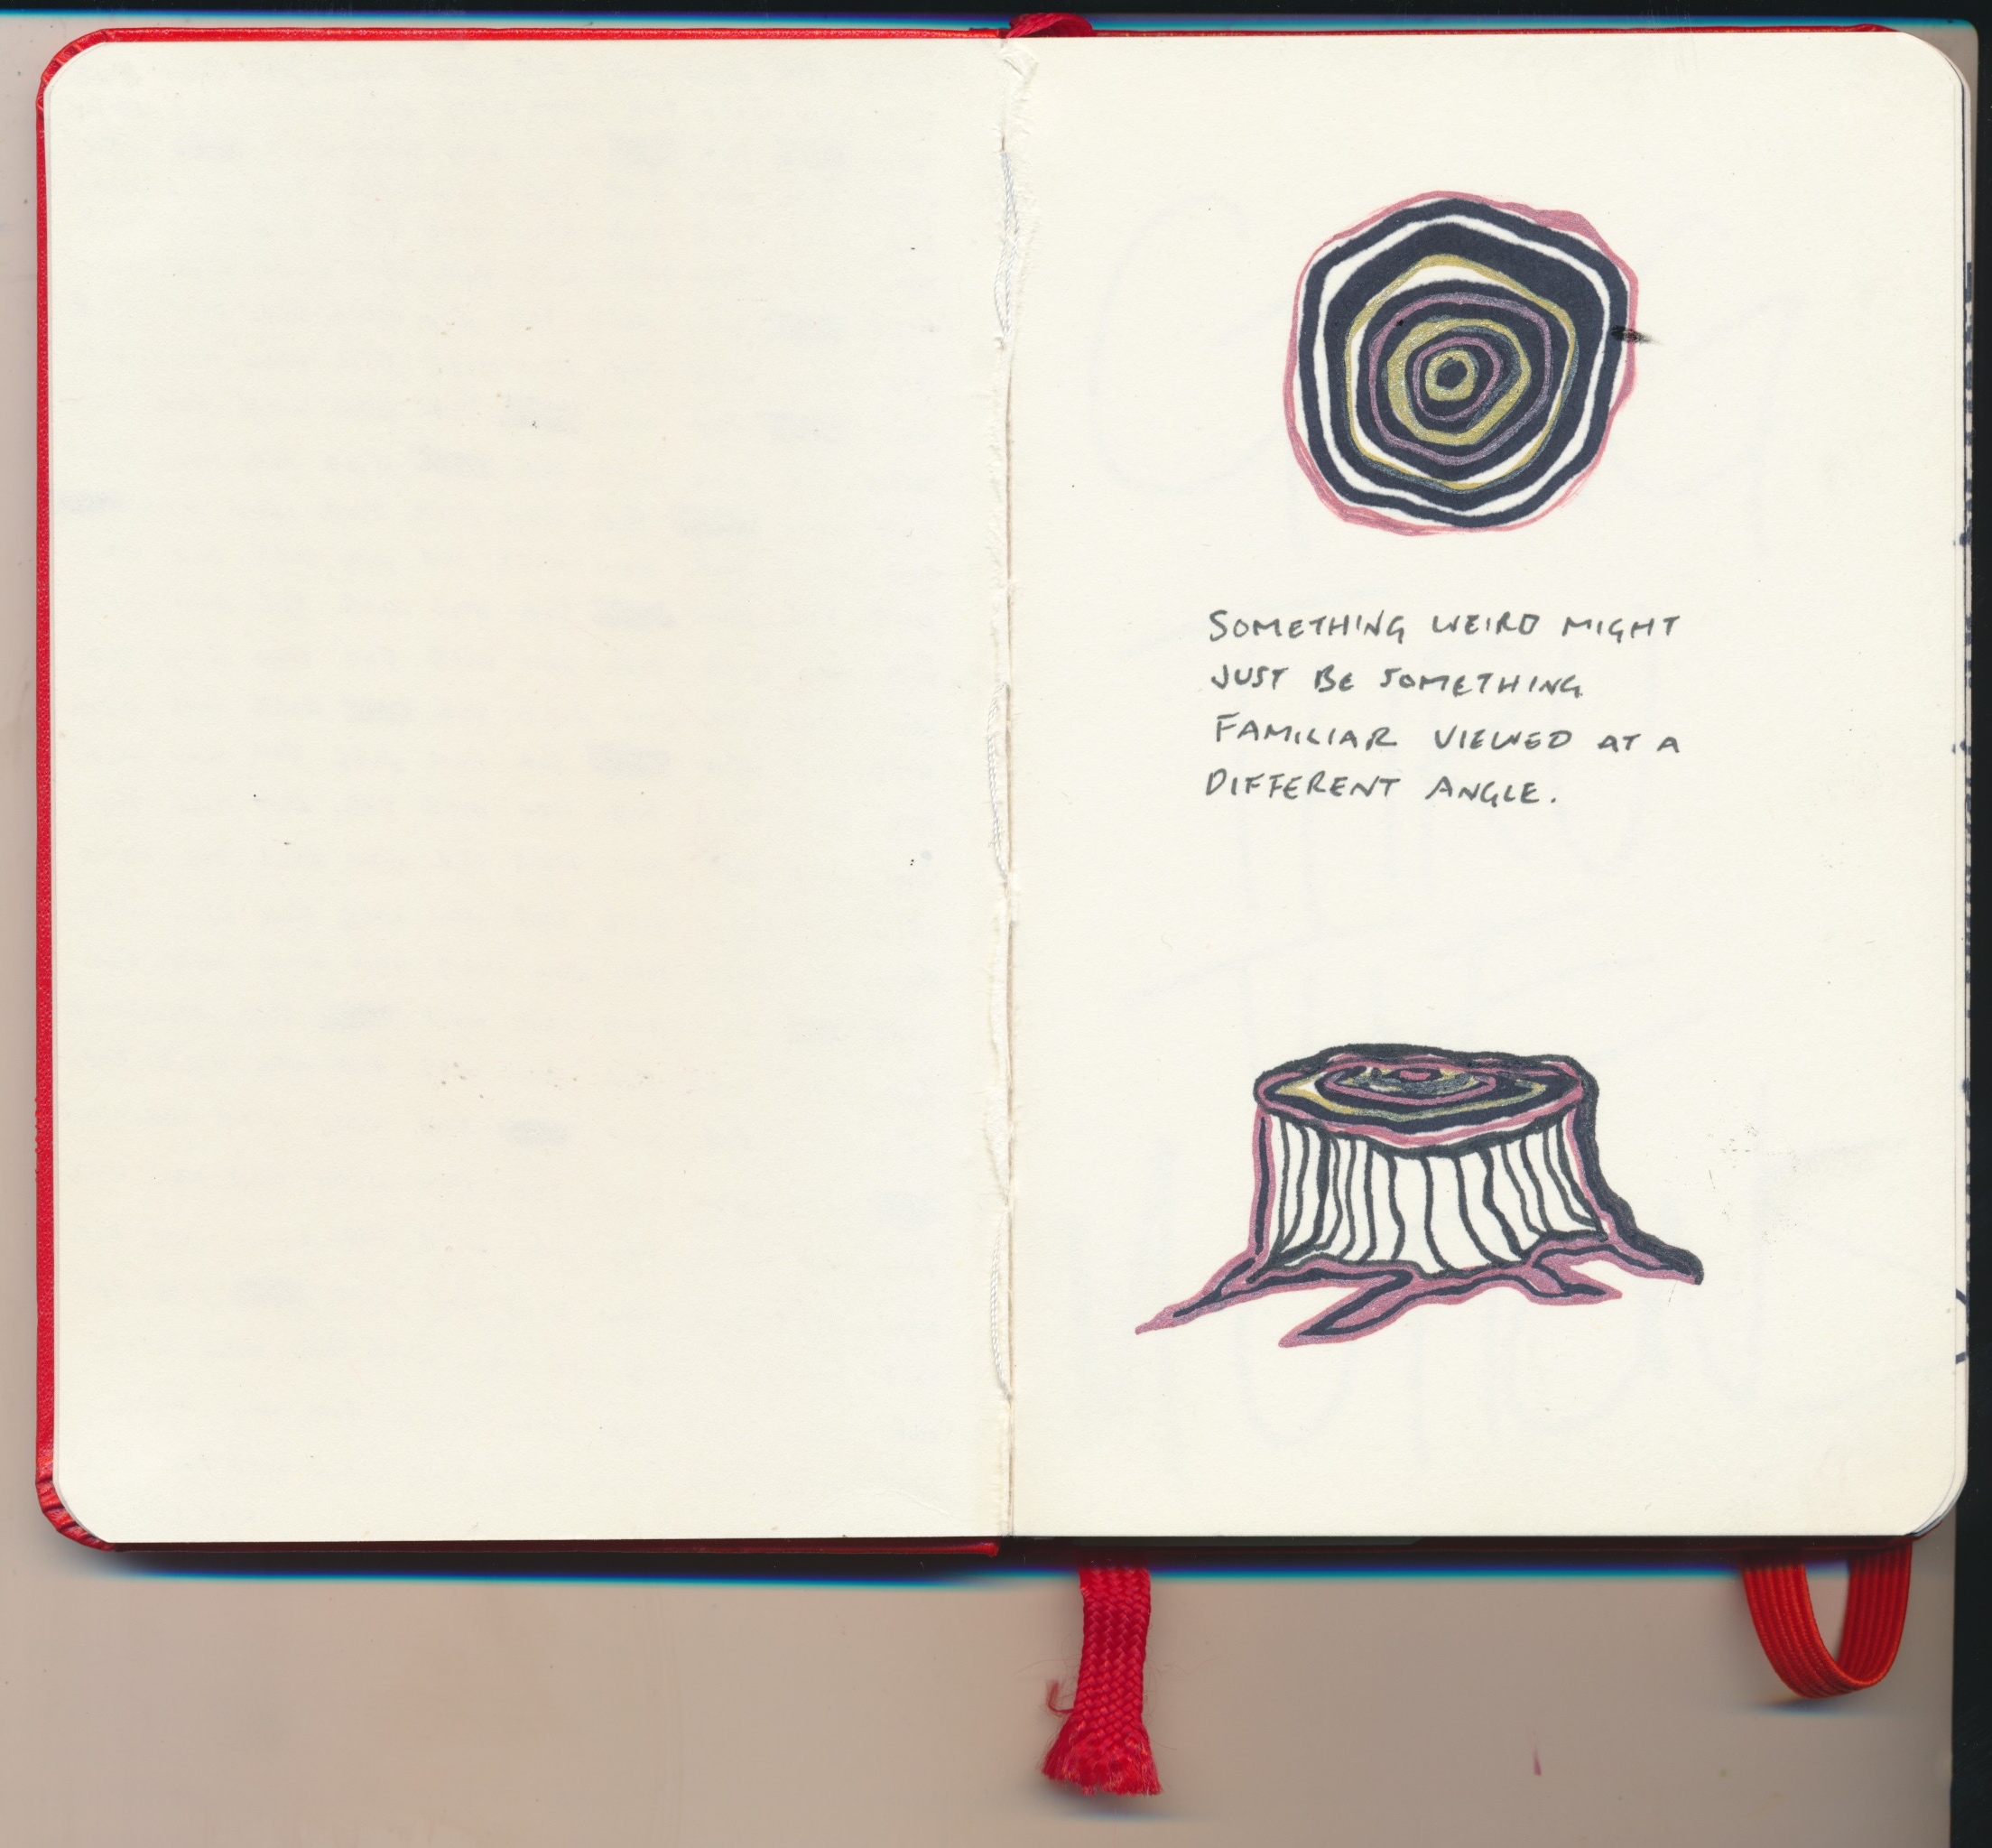 SOMETHING WEIRD MIGHT
JUST BE SOMETHING
FAMILIAR VIEWED AT A
DIFFERENT ANGLE.